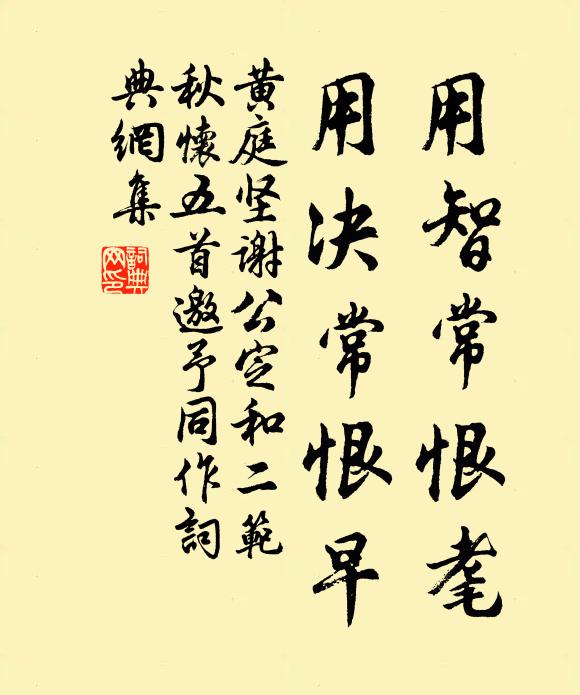 用智常恨耄
用决常恨早
黄庭坚谢公定和二範
秋懷五首邀予同作詞
典網集
詞典
网印